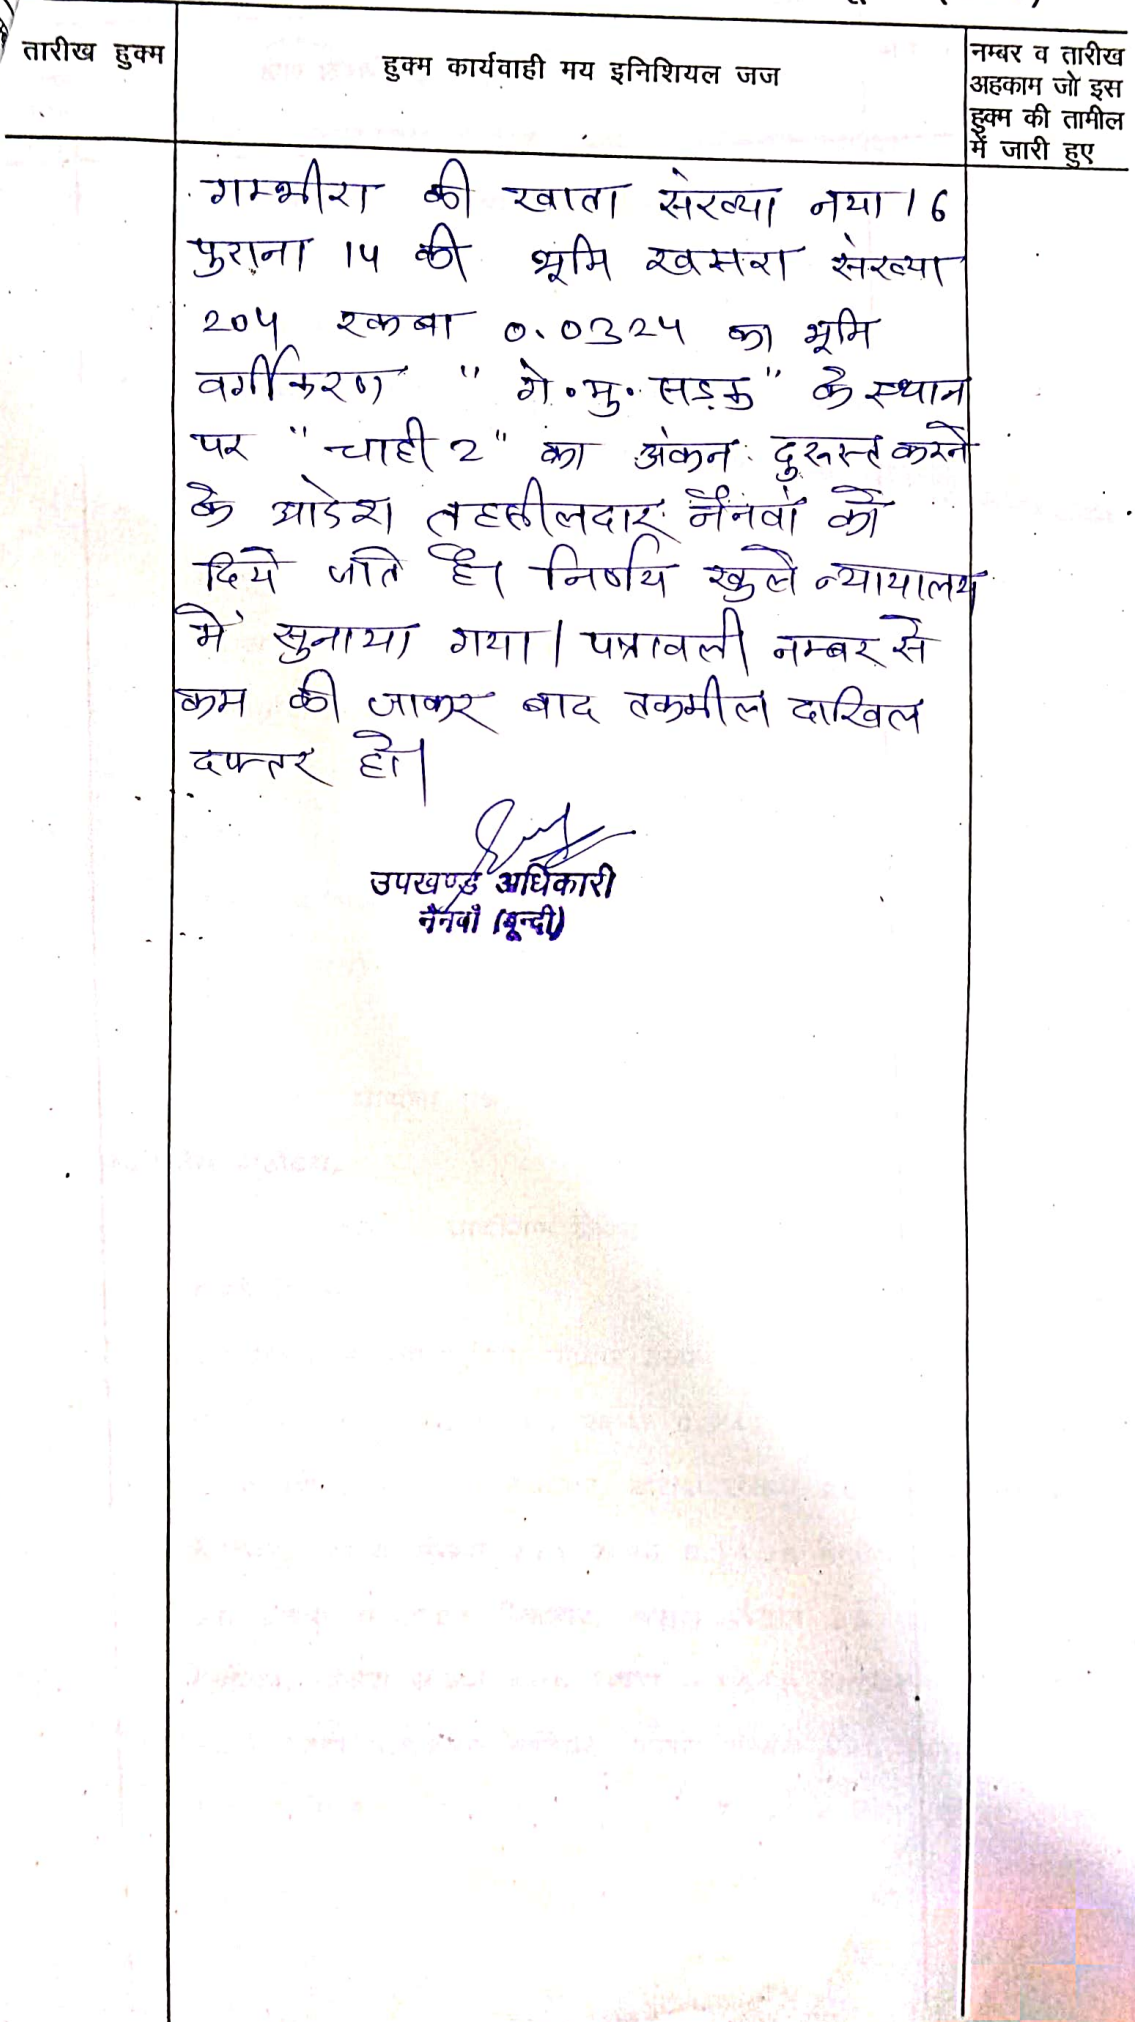 तारीख हुक्म
हुक्म कार्यवाही मय इनिशियल जज
नम्बर व तारीख
अहकाम जो इस
हुक्म की तामील
में जारी हुए
गम्भीरा की खाता संख्या नया 16
पुराना 14 की भूमि खसरा संख्या
204 रकबा 0.0324 का भूमि
वर्गीकरण "गे.मु. सड़क" के स्थान
पर "चाही 2" का अंकन दुरुस्त करने
के आदेश तहसीलदार नैनवां को
दिये जाते है। निर्णय खुले न्यायालय
मे सुनाया गया। पत्रावली नम्बर से
कम की जाकर बाद तकमील दाखिल
दफ्तर हो।
उपखण्ड अधिकारी
नैनवाँ (बून्दी)